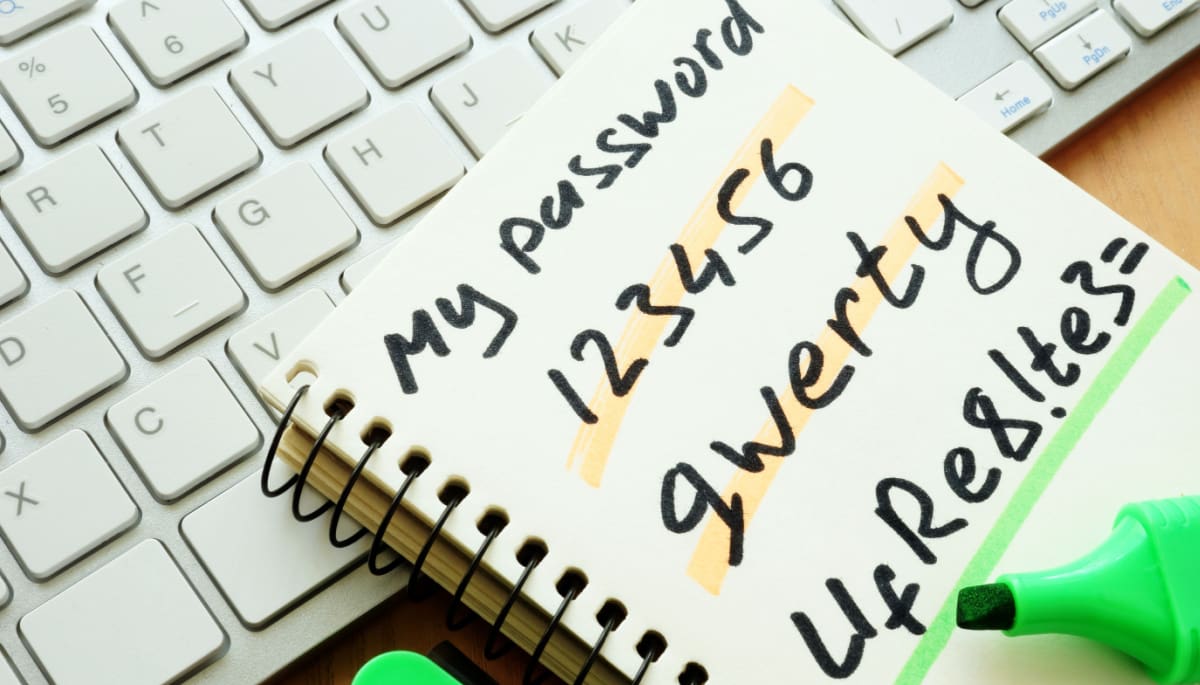 My password
123456
qwerty
UfRe8!te3=
%
5
^
6
R
T
Y
U
D
F
G
H
J
K
X
C
V
/
PgUp
End
PgDn
Home